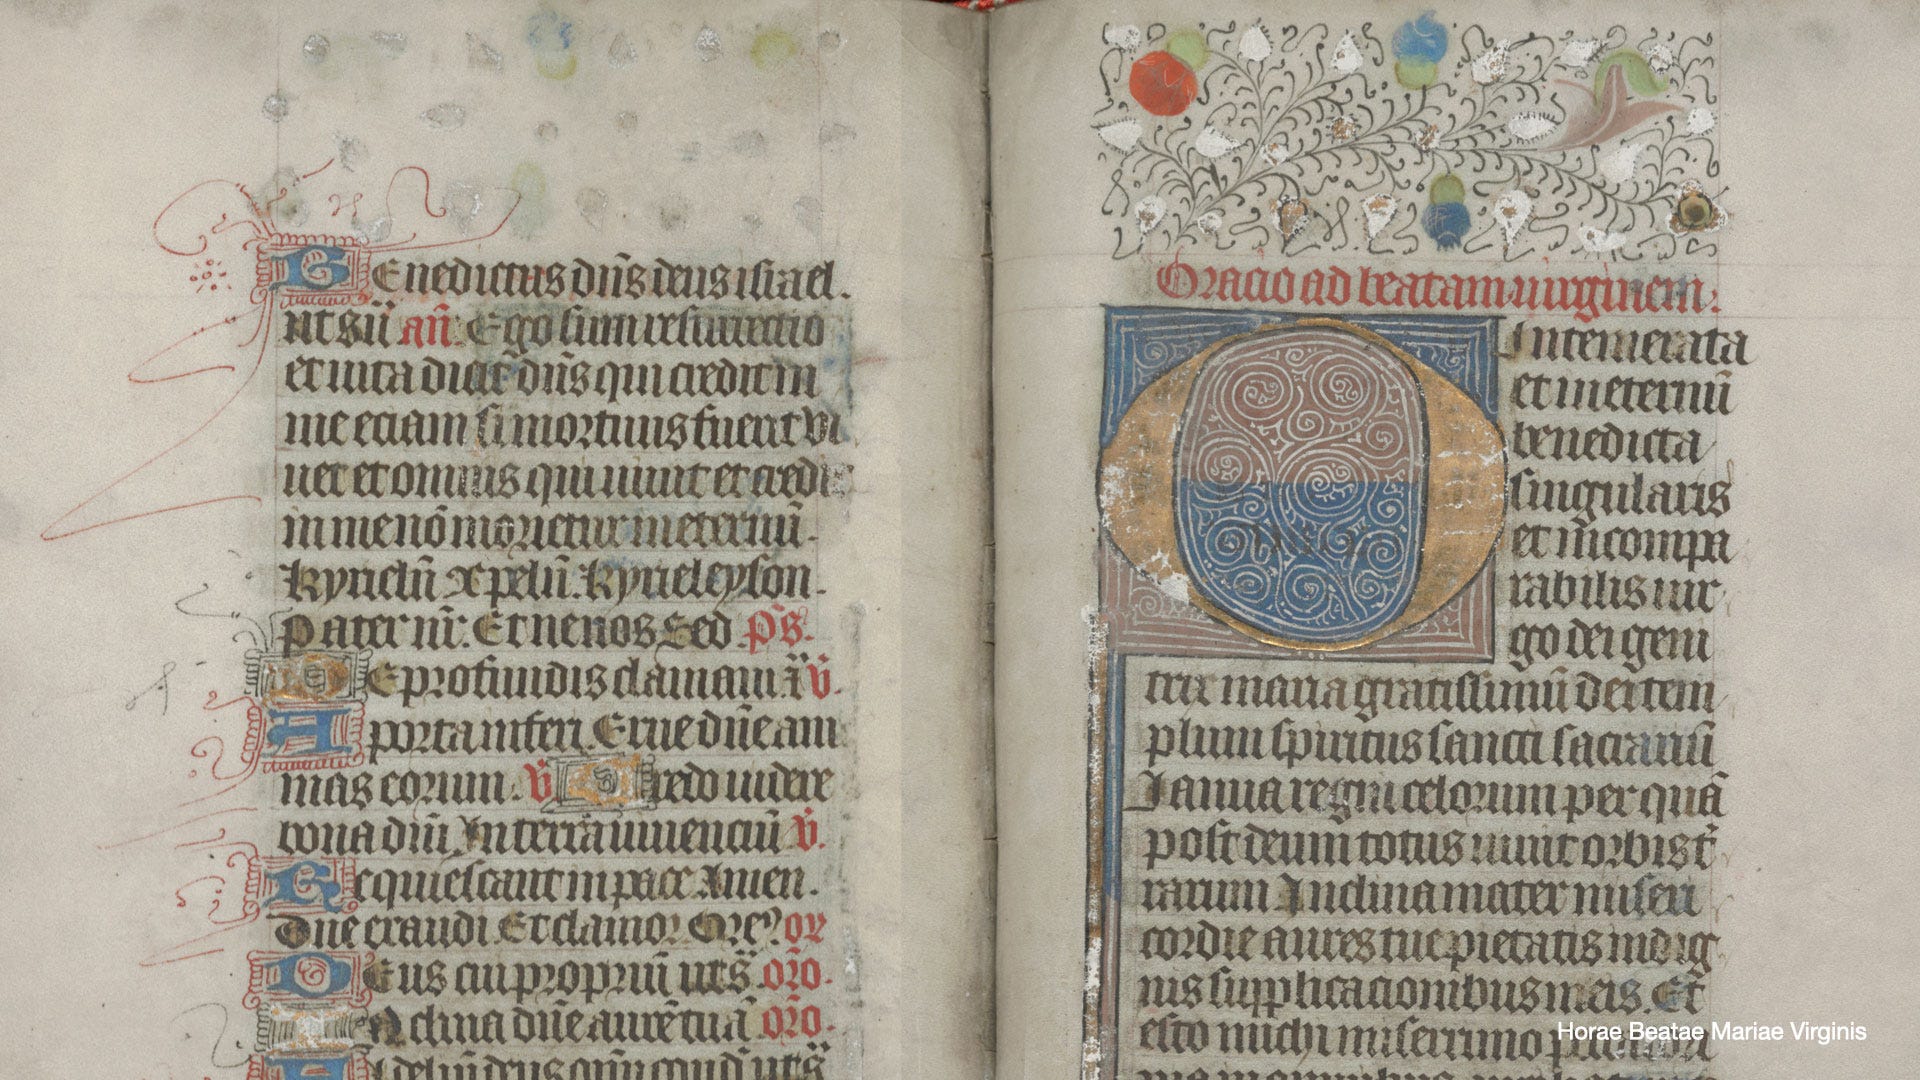 Benedictus dn̄s deus israel.
ut sū an̄. Ego sum resurrectio
et uita dicit dn̄s qui credit in
me eciam si mortuus fuerit vi
uet et omnis qui uiuit et credit
in me nō morietur in eternū.
kyriel̄n xpel̄n. kyrieleyson.
Pater nr̄. Et ne nos Sed p̄s.
De profundis clamaui ā v̄.
A porta inferi. Erue dn̄e ani
mas eorum. v̄ Credo uidere
bona dn̄i In terra uiuenciū v̄.
Requiescant in pace Amen.
Dn̄e exaudi. Et clamor. Orem̄ or
Deus cui propriū ut s̄ oro.
Inclina dn̄e aurē tuā oro.
Oracio ad beatam uirginem.
O Intemerata
et in eternū
benedicta
singularis
et incompa
rabilis uir
go dei geni
trix maria gratissimū dei tem
plum spiritus sancti sacrariū
Ianua regni celorum per quā
post deum totus uiuit orbis t̄
rarum Inclina mater miseri
cordie aures tue pietatis indig
nis supplicacionibus meis. Et
esto michi miserrimo peccatori
Horae Beatae Mariae Virginis